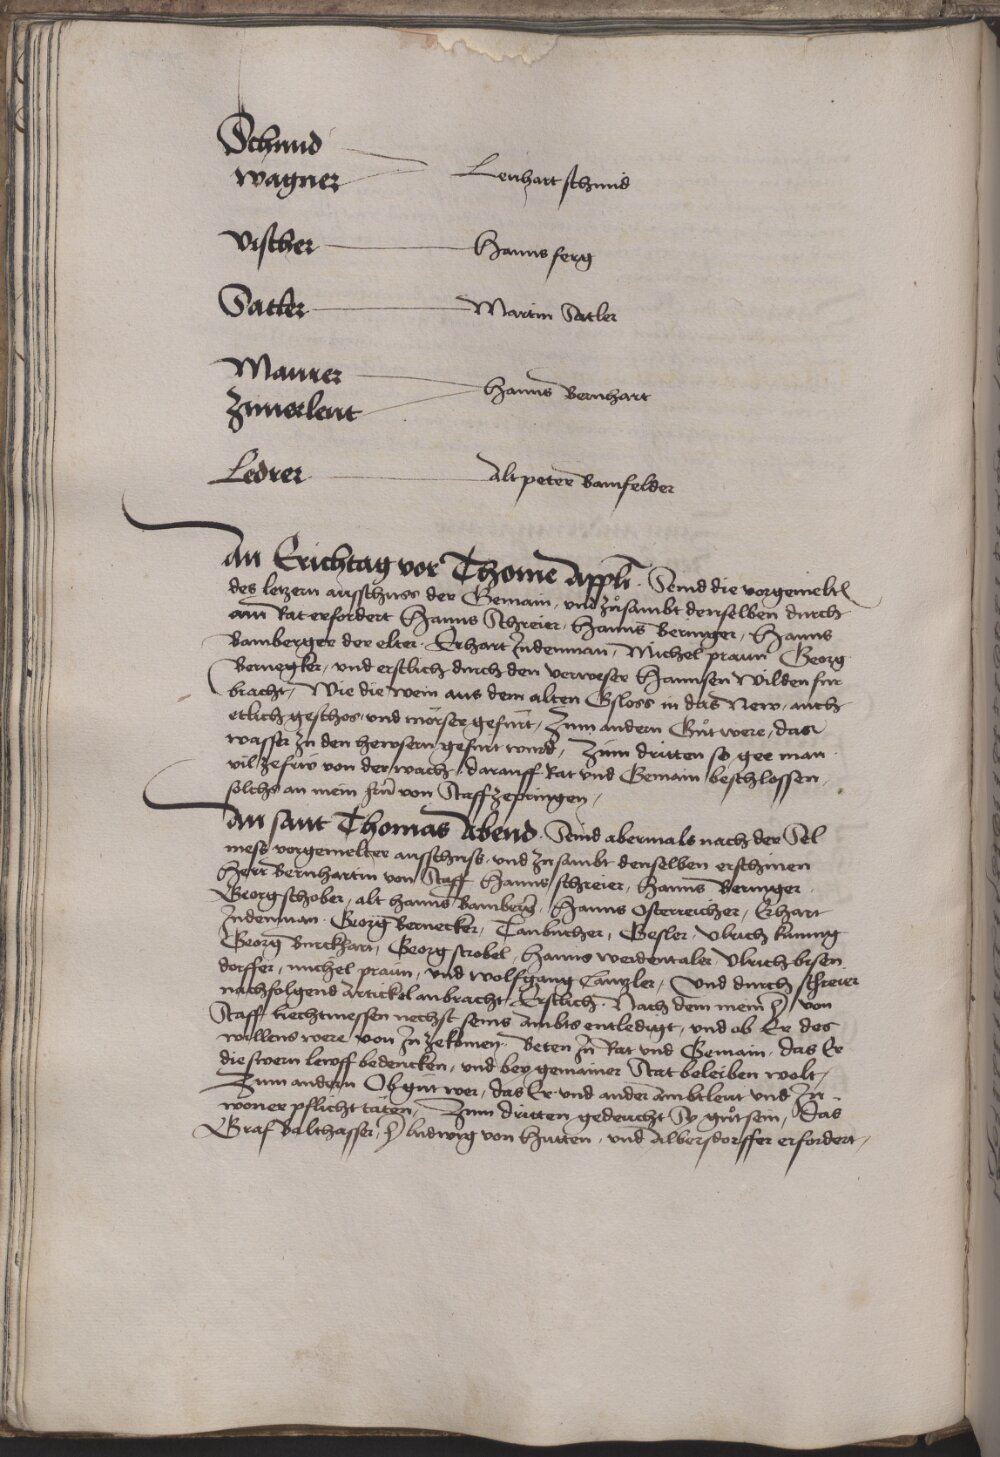 Schmid
wagner Lenhart schmid
Vischer Hanns ferg
Satler Martin Satler
Maurer
Zimerleut Hanns Bernhart
Ledrer Alt peter
An Erichtag vor Thome Appli. Seind die vorgemelt
des letzern ausschuss der Gemain, und zusambt denselben durch
ain Rat erfordert Hanns Schreier, Hanns Beringer, Hanns
Bamberger der elter, Erhart Indenman, Michel praun, Georg
Bernegker, und erstlich durch den verweser Hannsen Wilden fur
bracht, Wie die wein aus dem alten Gsloss in das New, auch
etlich geschos und mörser gefürt, Zum andern Gut were, das
wasser zu den hewsern gefurt wurd, Zum dritten so gee man
vil zefrw von der wach, darauff Rat und Gemain beschlossen,
solchs an mein hrn von Stauff zepringen,
An sant Thomas Abend. Seind abermals nach der Sel
mess vorgemelter ausschuss, und zusambt denselben erschinen
Herr Bernhartin von Stauff, Hanns schreier, Hanns Beringer,
Georg schober, alt Hanns Bamberg, Hanns Osterreicher, Erhart
Indenman, Georg Bernecker, Gesler, Ulrich kunig
Georg Burckhart, Georg strobel, Hanns weidentaler, Ulrich
dorffer, michel praun, und wolfgang Cantzler, Und durch schreier
nachfolgend Artickel anbracht, Erstlich, Nach dem mein h von
Stauff liechtmessen nechst seins Ambts entledigt, und ob Er des
willens were, von In zekomen, beten In Rat und Gemain, das Er
die swern lewff bedencken, und bey gemainer Stat beleiben wolt,
Zum andern Ob gut wer, das Er und ander ambtleut und In
woner pflicht täten, Zum dritten gedeucht Sy gut sein, Das
Graf Balthasser, h ludwig von Hutten, und Albersdorffer erfordert,